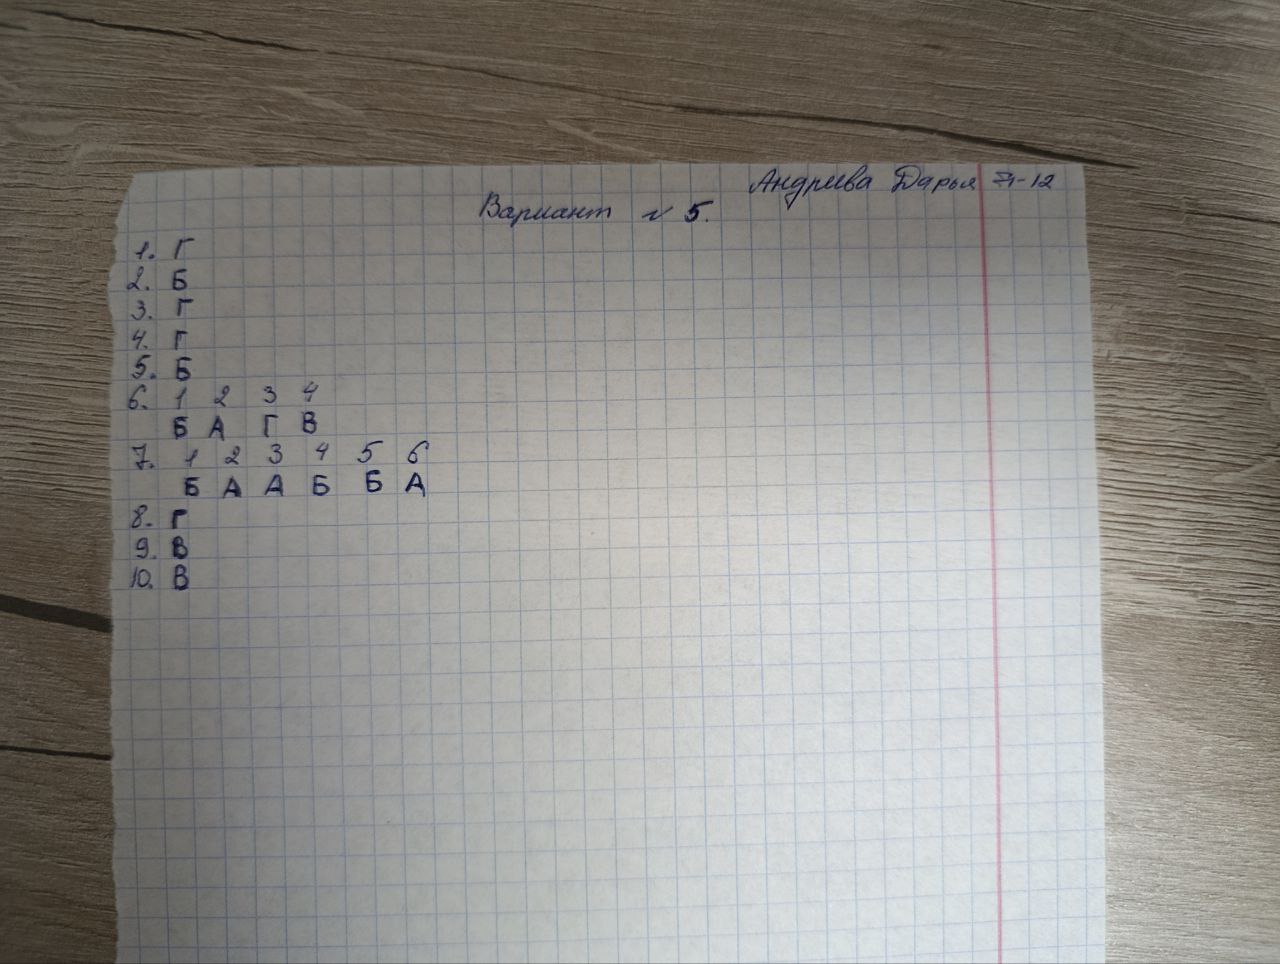 Андриева Дарья
Вариант № 5.
1. Г
2. Б
3. Г
4. Г
5. Б
6. 1 2 3 4
Б А Г В
7. 1 2 3 4 5 6
Б А А Б Б А
8. Г
9. В
10. В